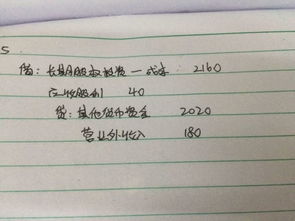 5
借：长期股权投资－成本 2160
应收股利 40
贷：其他货币资金 2020
营业外收入 180